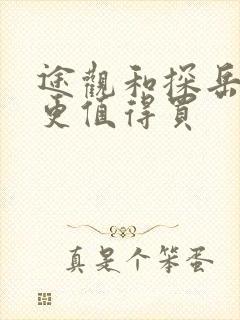 途觀和探岳
更值得買
真是个笨蛋